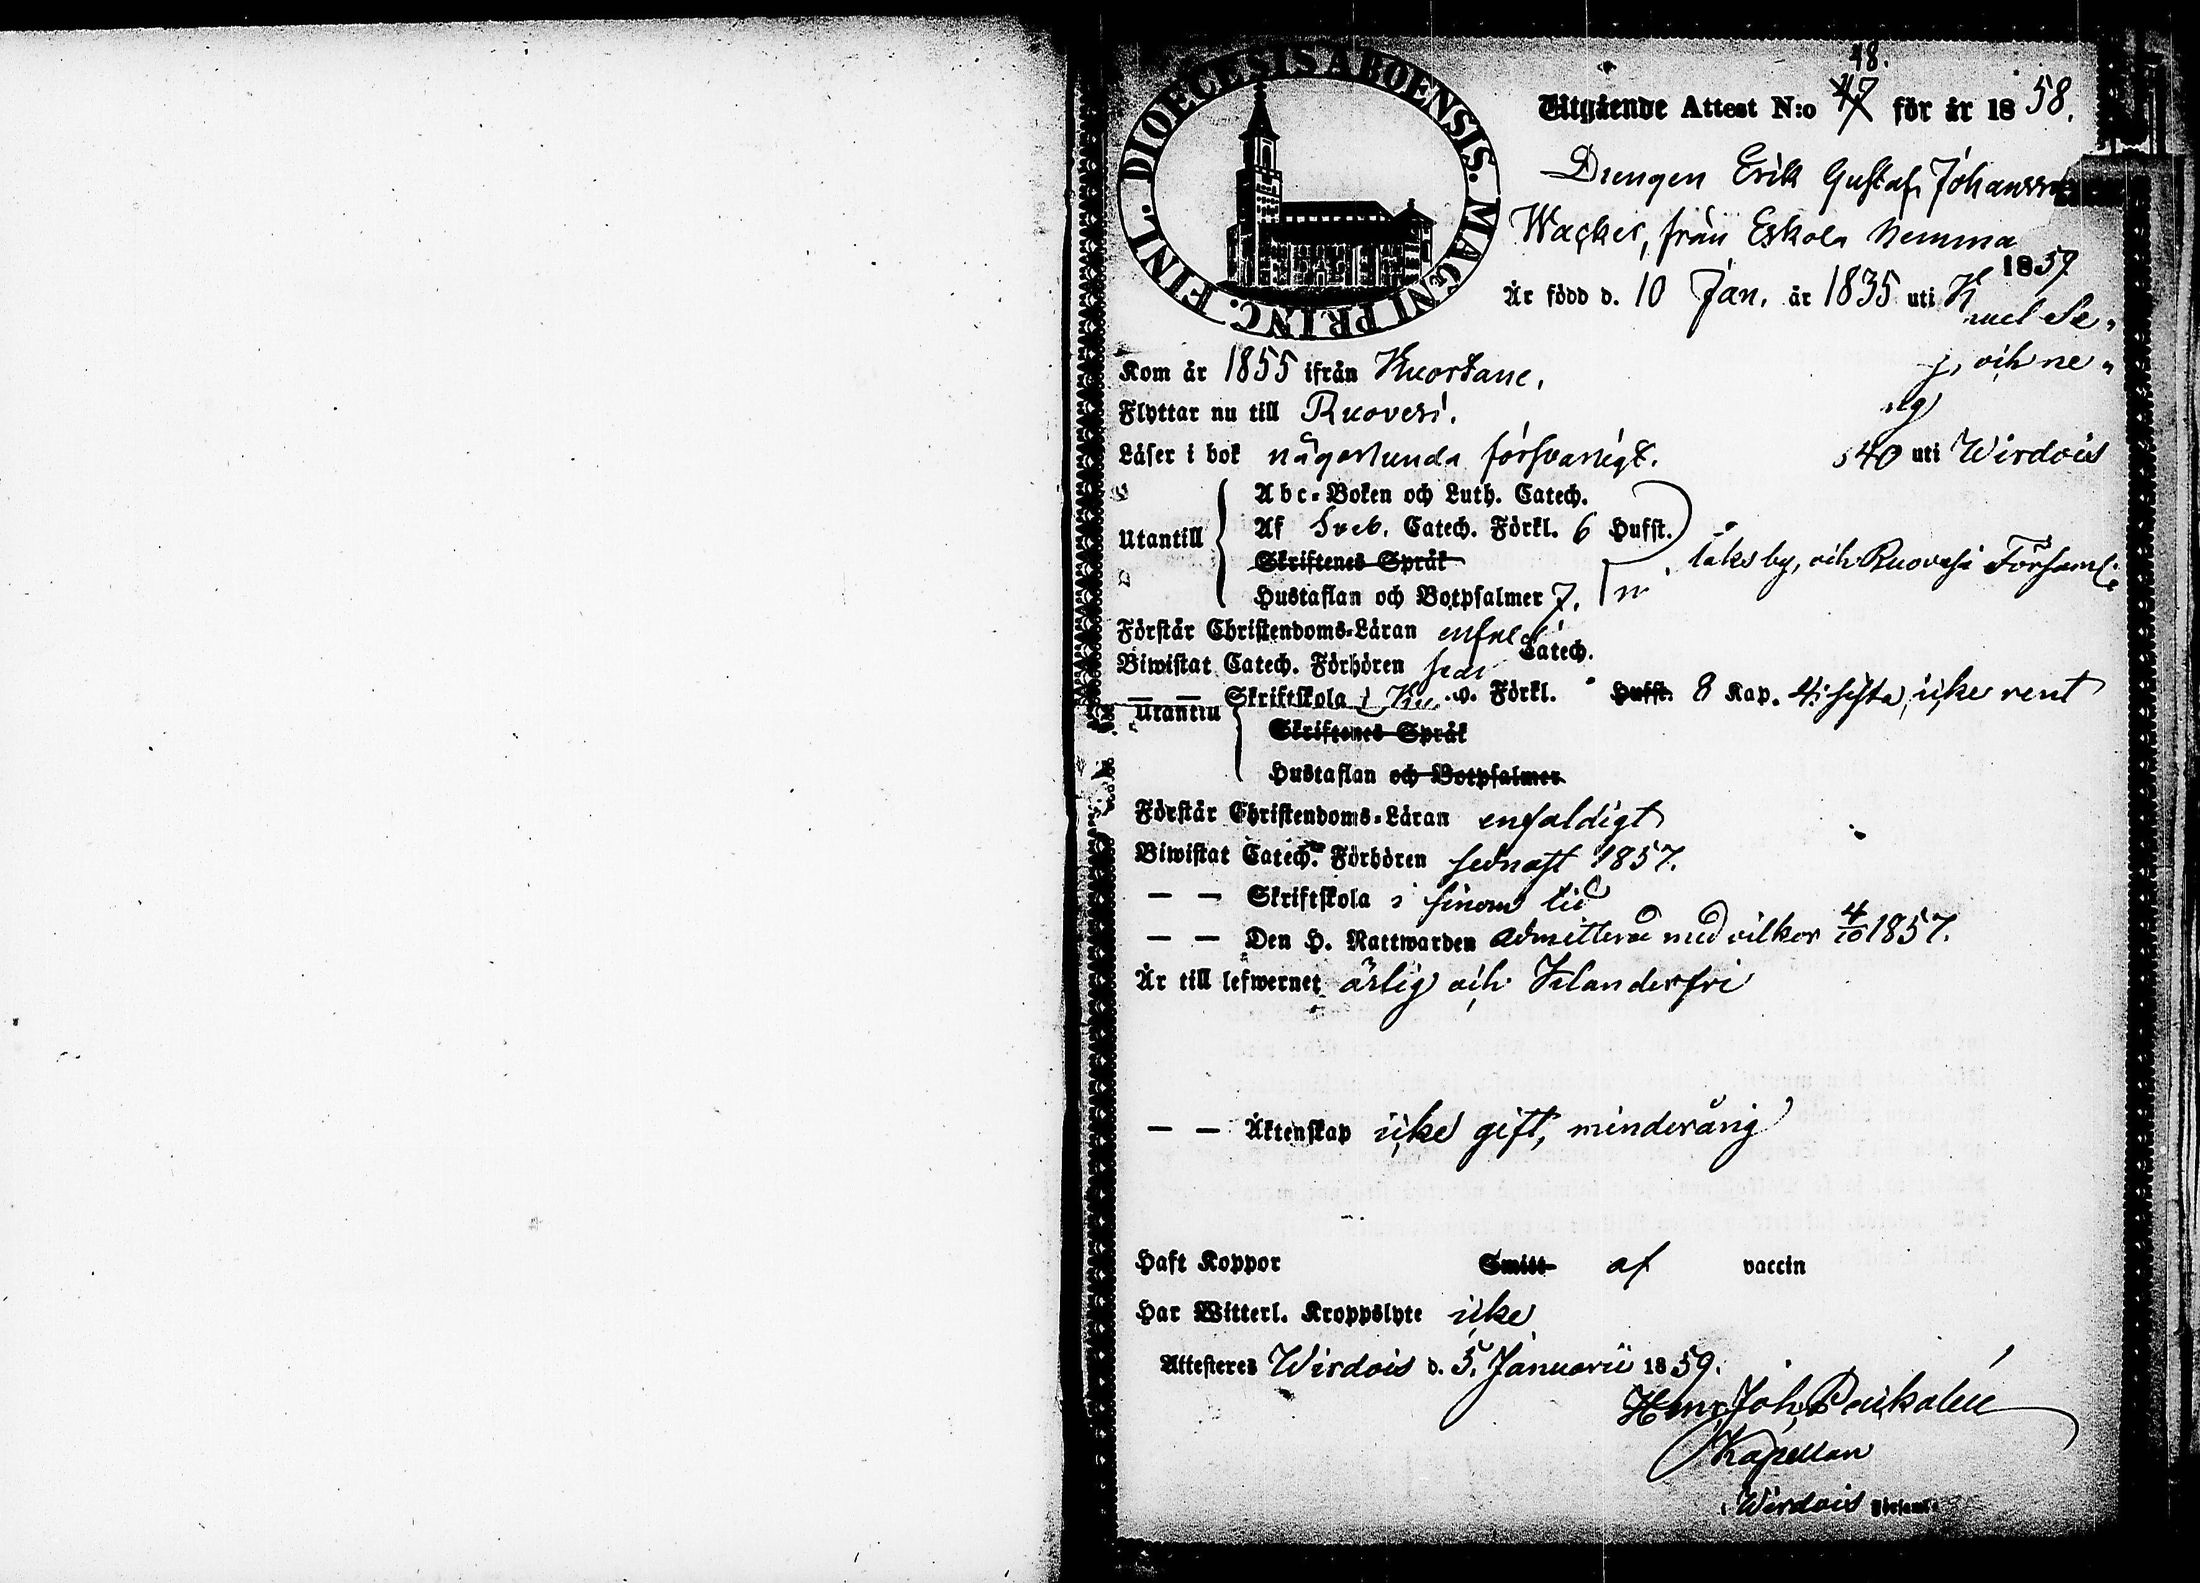 FINL. DIOECESIS ABOENSIS. MAGNI PRINC.
48.
Utgående Attest N:o 47 för år 1858.
Drengen Erik Gustaf Johansson
Wacker, från Eskola hemma
1859
Är född d. 10 Jan. år 1835 uti K
uel Se-
Kom år 1855 ifrån Kuortane.
och ne-
Flyttar nu till Ruovesi.
ng
Läser i bok någorlunda försvarligt.
40 uti Wirdois
Utantill
Abc-Boken och Luth. Catech.
Af Sveb. Catech. Förkl. 6 Hufst.
Skriftenes Språk
låks by, och Ruovesi Församl:
Hustaflan och Botpsalmer 7.
Förstår Christendoms-Läran enfald
Catech.
Biwistat Catech. Förhören sedn
— — Skriftskola i Ku
Utantill
v. Förkl. Hufst. 8 Kap. 4 sista icke rent
Skriftenes Språk
Hustaflan och Botpsalmer
Förstår Christendoms-Läran enfaldigt
Biwistat Catech. Förhören sednast 1857.
— — Skriftskola i sinom tid
— — Den H. Nattwarden admitterad med vilkor 4/10 1857.
Är till lefwernet ärlig och klanderfri
— — Äktenskap icke gift, minderårig
Haft Koppor Smitt af vaccin
Har Witterl. Kroppslyte icke
Attesteres Wirdois d. 5. Januarii 1859.
Henr. Joh.
Kapellan
i Wirdois Församl: